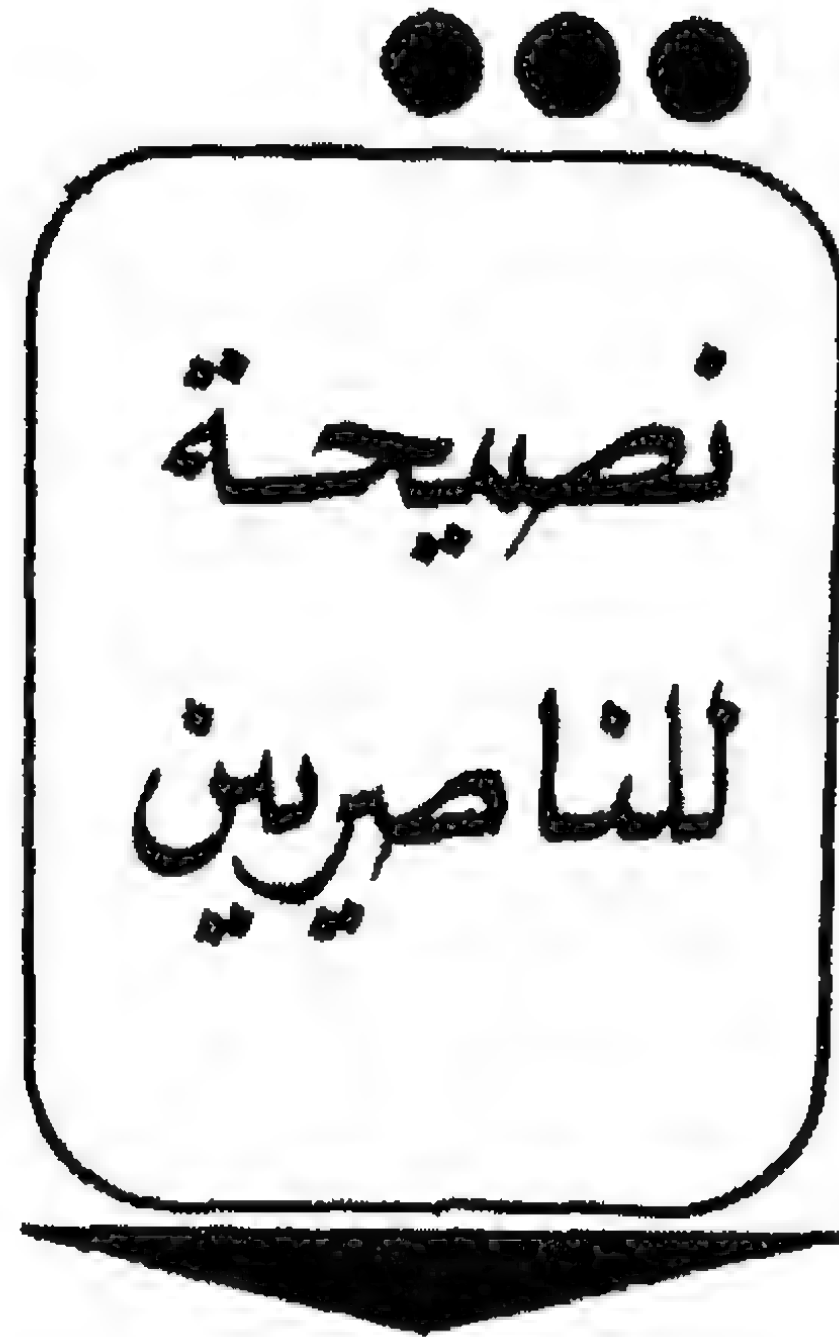 نصيحة
للناصريين